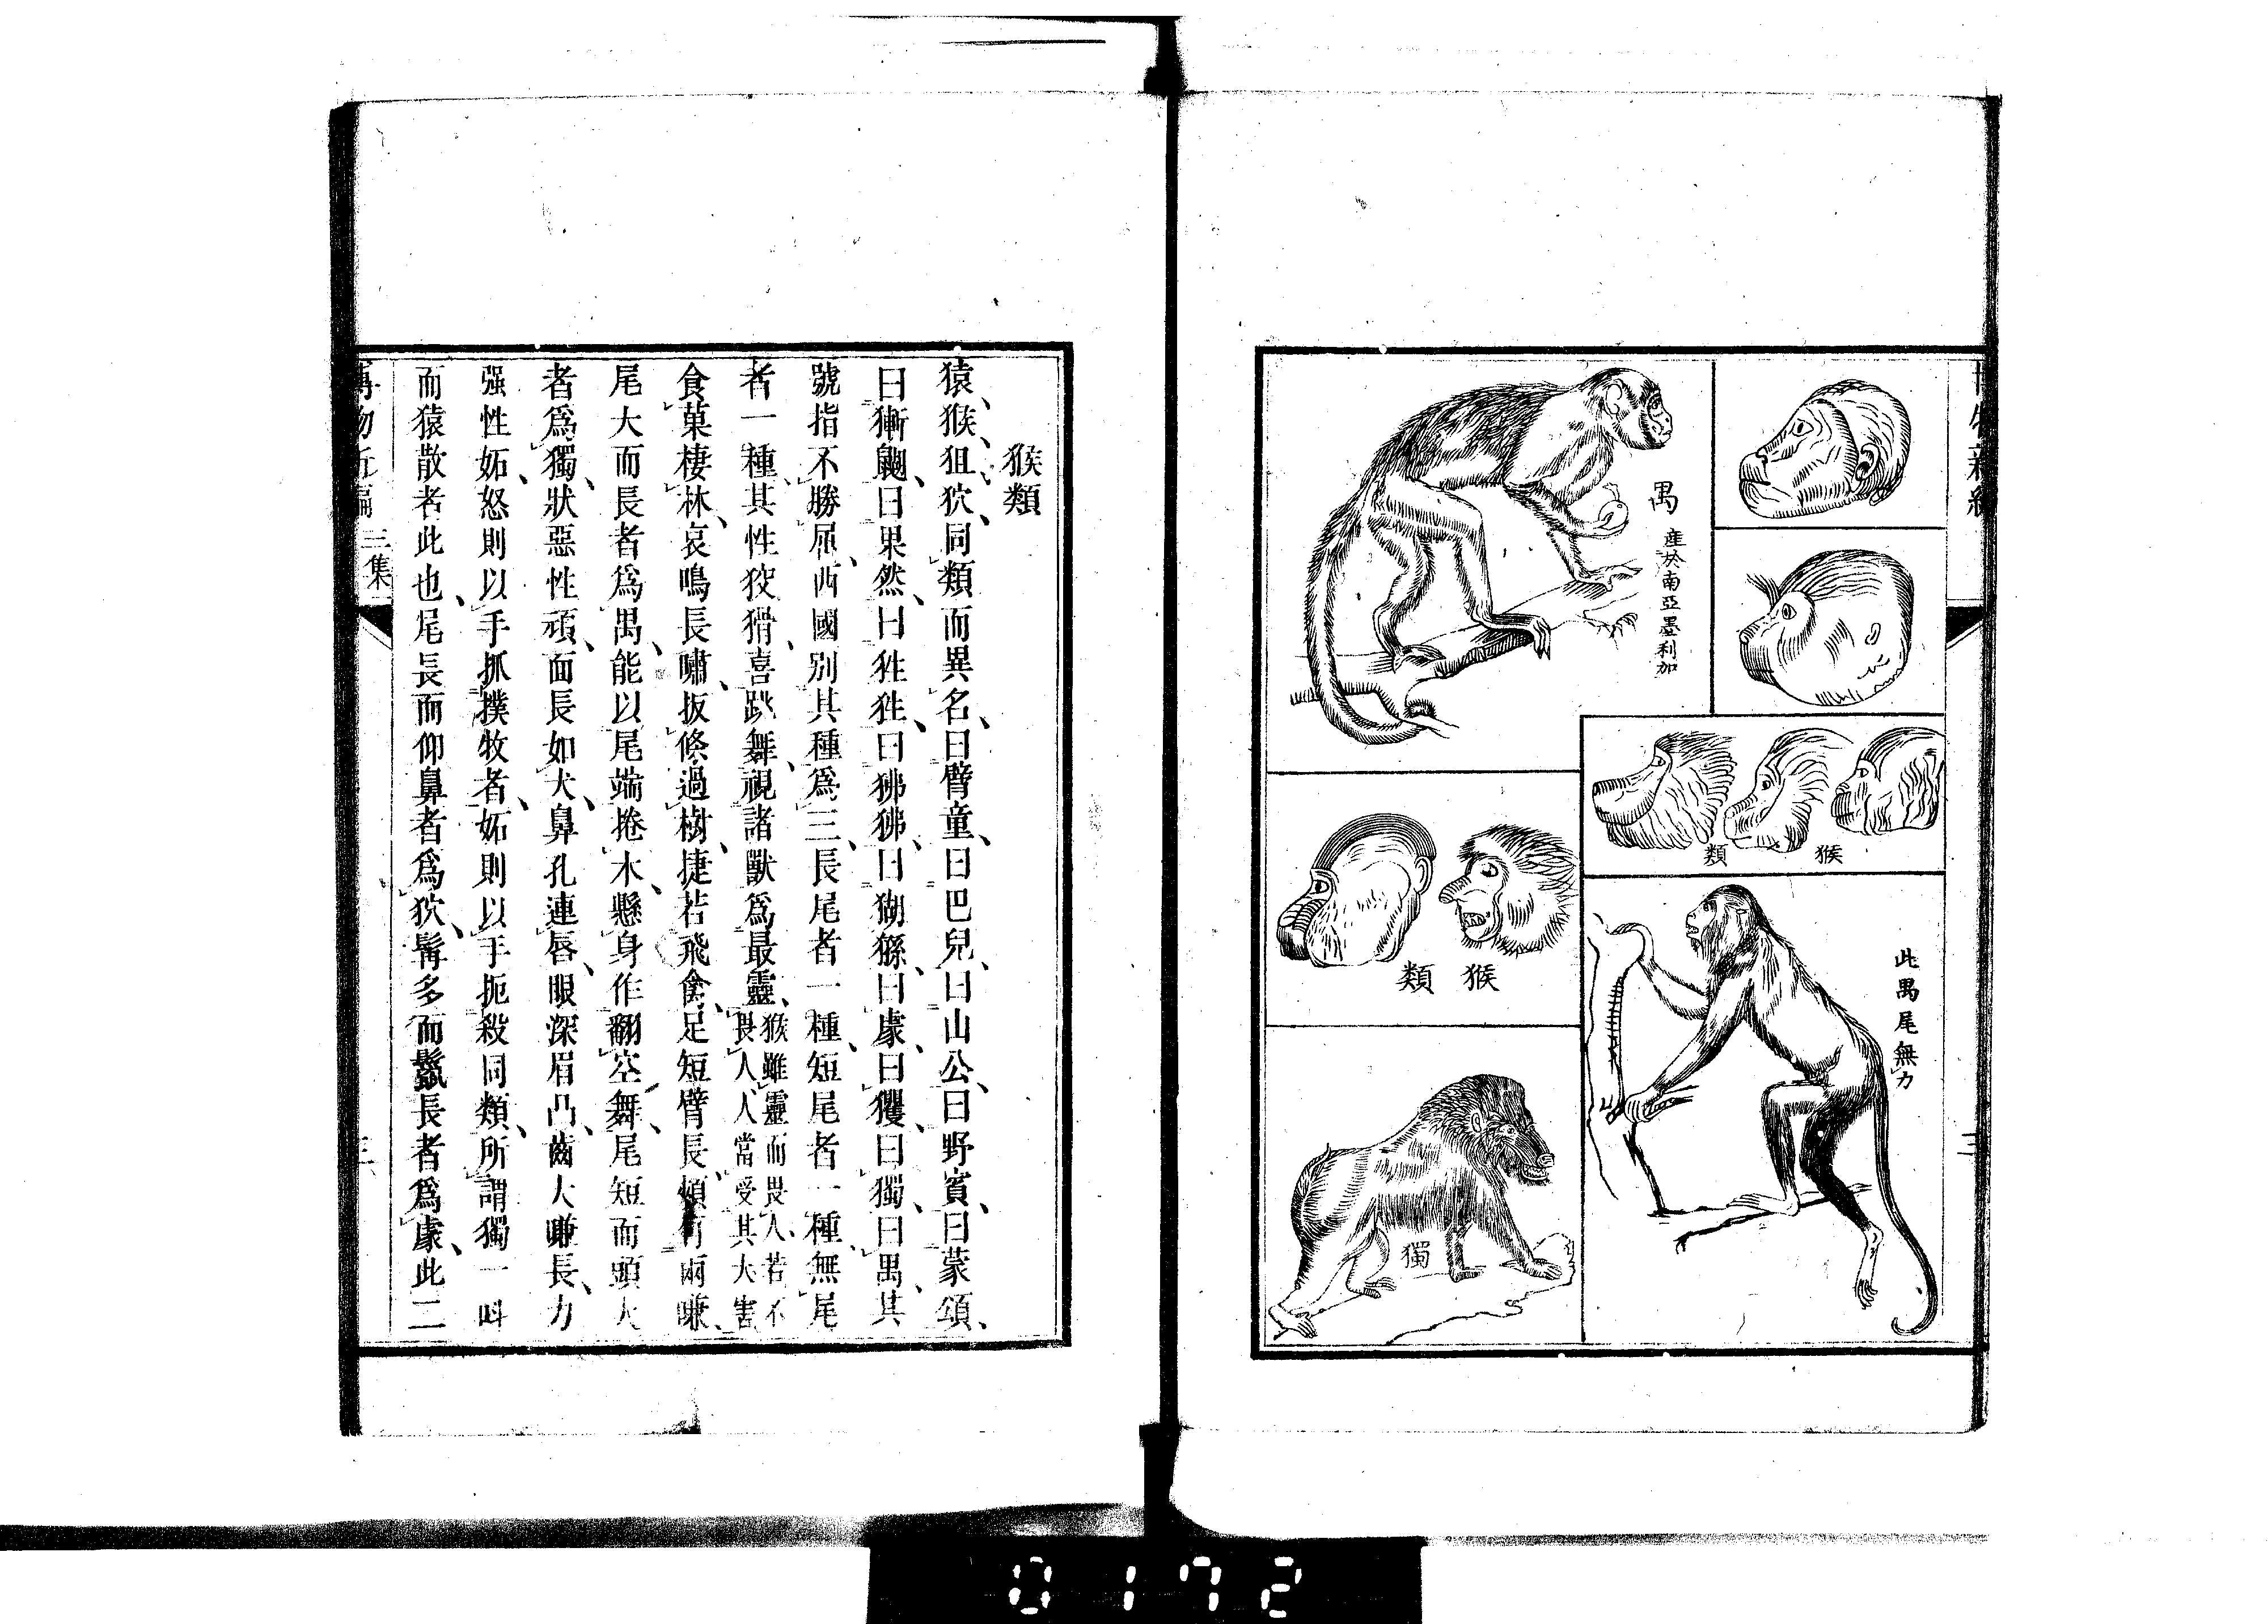 禺
產於南亞墨利加
猴類
此禺尾無力
猴類
獨
三
猴類
猿、猴、狙、狖、同類而異名、曰臂童、曰巴兒、曰山公、曰野賓、曰蒙頌、
曰獑䶉、曰果然、曰狌狌、曰狒狒、曰猢猻、曰豦、曰玃、曰獨、曰禺、其
號指不勝屈、西國別其種爲三、長尾者一種、短尾者一種、無尾
者一種、其性狡猾、喜跳舞、視諸獸爲最靈、猴雖靈而畏人、若不
畏人、人當受其大害
食菓棲林、哀鳴長嘯、扳條過樹、捷若飛禽、足短臂長、頰有兩嗛、
尾大而長者爲禺、能以尾端捲木、懸身作翻空舞、尾短而頭大
者爲獨、狀惡性頑、面長如犬、鼻孔連唇、眼深眉凸、齒大嗛長、力
强性妬、怒則以手抓撲牧者、妬則以手扼殺同類、所謂獨一叫
而猿散者此也、尾長而仰鼻者爲狖、髯多而鬣長者爲豦、此二
博物新編 三集
三
0172